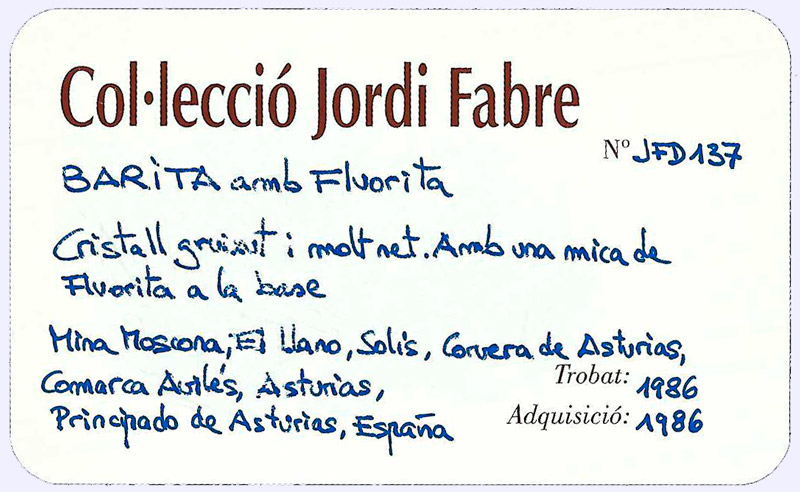 Col·lecció Jordi Fabre
Nº JFD137
BARITA amb Fluorita
Cristall gruixut i molt net. Amb una mica de
Fluorita a la base
Mina Moscona, El Llano, Solís, Corvera de Asturias,
Comarca Avilés, Asturias,
Trobat: 1986
Principado de Asturias, España
Adquisició: 1986